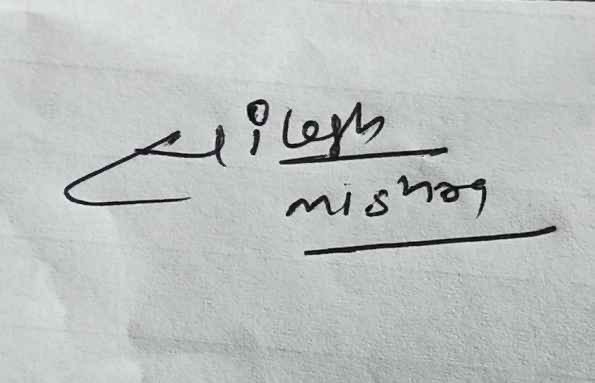 Nilesh
mishra